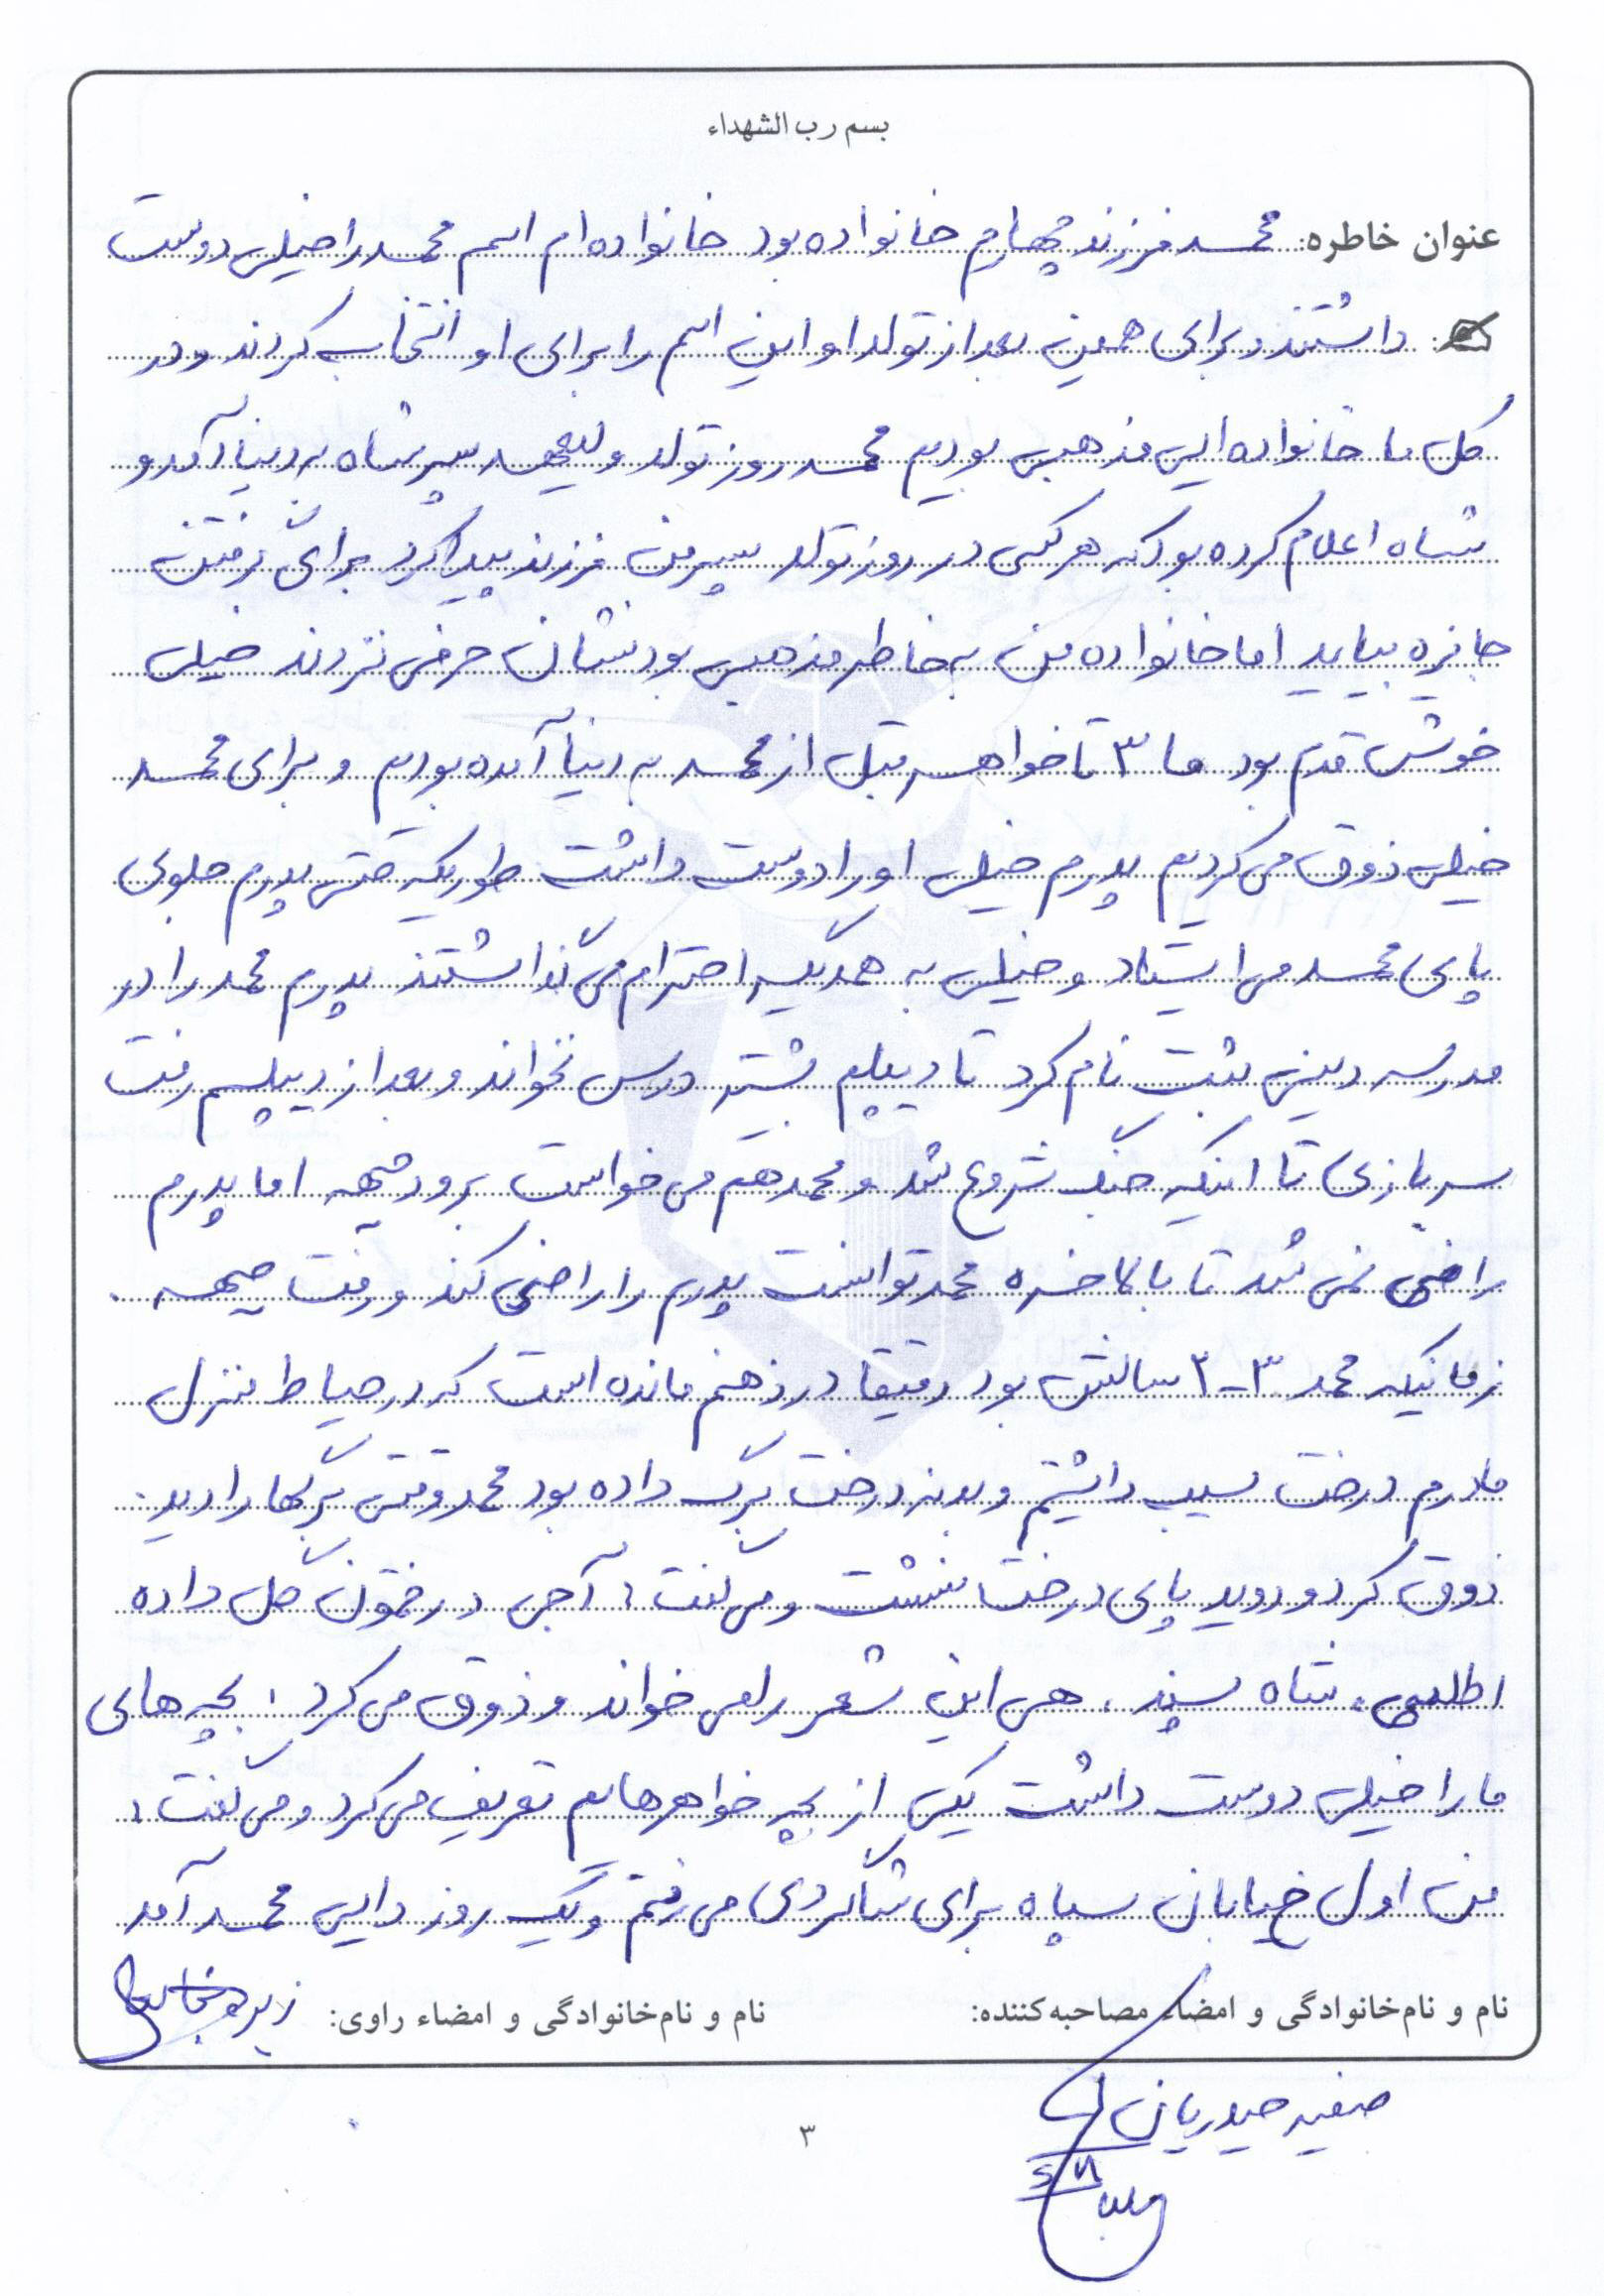 بسم رب الشهداء
عنوان خاطره: محمد فرزند چهارم خانواده بود خانواده ام اسم محمد را خیلی دوست
داشتند و برای همین بعد از تولد او این اسم را برای او انتخاب کردند و در
کل ما خانواده ایی مذهبی بودیم محمد روز تولد ولیعهد پسر شاه به دنیا آمد و
شاه اعلام کرده بود که هر کسی در روز تولد پسر من فرزند پیدا کرد برای گرفتن
جایزه بیاید اما خانواده من به خاطر مذهبی بودنشان حرفی نزدند خیلی
خوش قدم بود ما ۳ تا خواهر قبل از محمد به دنیا آمده بودیم و برای محمد
خیلی ذوق می کردیم پدرم خیلی او را دوست داشت طوریکه حتی پدرم جلوی
پای محمد می ایستاد و خیلی به همدیگر احترام می گذاشتند پدرم محمد را در
مدرسه دینی ثبت نام کرد تا دیپلم بیشتر درس نخواند و بعد از دیپلم رفت
سربازی تا اینکه جنگ شروع شد و محمد هم می خواست برود جبهه اما پدرم
راضی نمی شد تا بالاخره محمد توانست پدرم را راضی کند و رفت جبهه .
زمانیکه محمد ۳-۲ سالش بود دقیقا در ذهنم مانده است که در حیاط منزل
مادرم درخت سیب داشتیم و بدنه درخت برگ داده بود محمد وقتی برگها را دید.
ذوق کرد و دوید پای درخت نشست و می گفت: آجی درختون گل داده
اطلسی، شاه پسند، هی این شعر را می خواند و ذوق می کرد. بچه های
ما را خیلی دوست داشت یکی از بچه خواهرهایم تعریف می کرد و می گفت:
من اول خیابان سپاه برای شاگردی می رفتم و یک روز دایی محمد آمد
نام و نام‌خانوادگی و امضاء مصاحبه‌کننده:
نام و نام‌خانوادگی و امضاء راوی:
صفیه حیدریان
۳